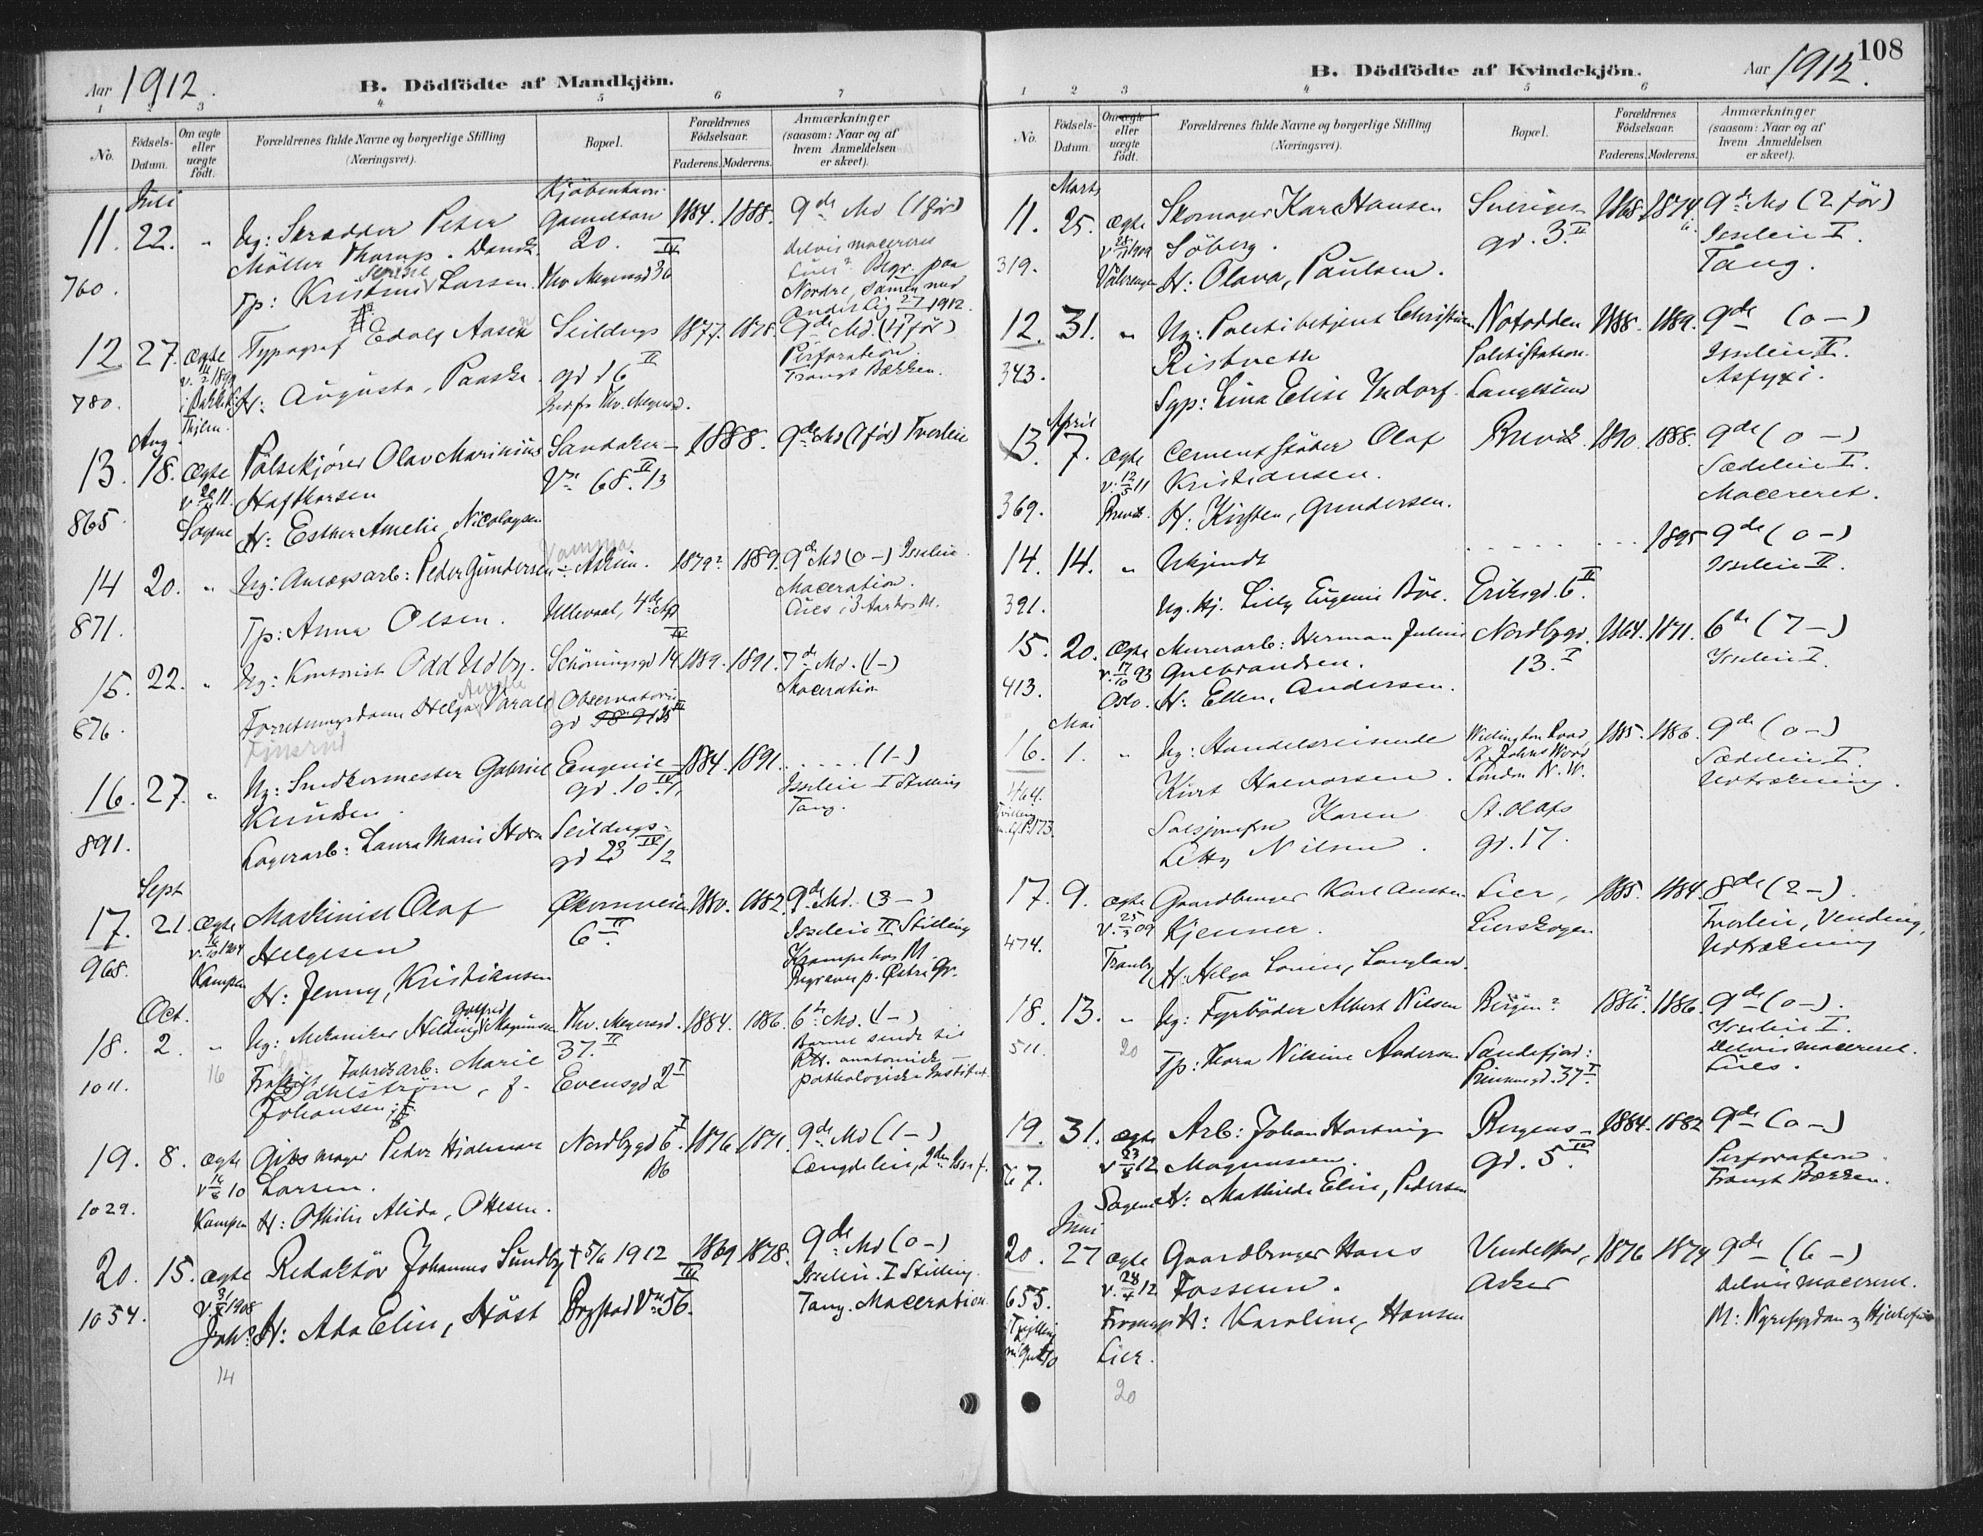 Aar 1912.
B. Dödfödte af Mandkjön.
1 3 4 5 6 7
No.
Födsels-Datum.
Om ægte eller uægte födt.
Forældrenes fulde Navne og borgerlige Stilling (Næringsvei).
Bopæl.
Forældrenes Födselsaar.
Faderens. Moderens.
Anmærkninger (saasom: Naar og af hvem Anmeldelsen er skeet).
Juli
11. 22. " Ug: Skrædder Peter
Möller Thorup. Dansk.
Tp: Kristine Larsen.
Kjöbenhavn.
20.
Thv. Meyersgd 36
1884. 1888.
9de Md (1 før)
delvis macereret
Lues? Begr. paa
Nordre, samen med
1912.
760.
12 27. ægte
Typograf Edolf Aasen
H: Augusta, Paaske.
Seildugs
gd 16 II
1877. 1878.
9de Md (4 før)
Perforation
Trangt Bækken.
780.
Aug.
13. 18. ægte
Pölsekjörer Olav Marinius
Hafthorsen
H: Esther Amelie, Nicolaysen
Sandaker-
Vn 68. II
1888.
9de Md (1 før) Tverleie
865.
14 20. " Ug: Anlægsarb: Peder Gundersen
Tp: Anna Olsen.
Vamma
Askim.
Ullevaal, 4de Afd
1879? 1889.
9de Md (0 —) Isseleie.
Maceration.
Lues,
871.
15. 22. " Ug: Kontorist Odd Udby.
Forretningsdame Helga
Schöningsgd 14 IV
Observatorie
gd
1889. 1891.
7de Md. (1 —)
Maceration
876.
16. 27. " Ug: Snedkermester Gabriel
Knudsen.
Lagerarb: Laura Marie Horn
Eugenie-
gd. 10. IV
Seildugs-
gd 23 IV 1/2
1884. 1891.
..... (1 —)
Isseleie I Stilling
Tang.
891.
Sept
17. 21. ægte
v. 16/10 1904
Kampen
Maskinist Olaf
Helgesen
H: Jenny, Kristiansen
Økernveien
6 II.
1880. 1882.
9de Md. (3 —)
Isseleie II Stilling
Krampe hos M.
Begraves p. Østre Gr.
968.
Oct.
18. 2. " Ug: Mekaniker Hilding Gotfred Magnusen
Fabrikarb: Marie
Dahlström, f.
Johansen
Thv. Meyersgd.
37. II
Evensgd 2 I
1884. 1886.
6te Md. (1 —)
Barnet sendt til
RH. anatomisk
pathologiske Institut.
16
1011.
19. 8. ægte
v 16/6 10
Kampen
Gibsmager Peder Hjalmar
Larsen.
H: Othilie Alida, Ottesen.
Nordbygd 6 I
B6
1876 1871.
9de Md (1 —)
Længdeleie,
1029.
20. 15. ægte
v. 1908
Joh?
Redaktör Johannes Sundby
H: Ada Elise, Höst
† 5/6 1912
Bogstad Vn 56. III
1869 1878.
9de Md (0 —)
Isseleie. I Stilling
Tang. Maceration.
1054.
14
108
B. Dödfödte af Kvindekjön.
Aar 1912.
1 2 3 4 5 6
No.
Födsels-Datum.
Om ægte eller uægte födt.
Forældrenes fulde Navne og borgerlige Stilling (Næringsvei).
Bopæl.
Forældrenes Födselsaar.
Faderens. Moderens.
Anmærkninger (saasom: Naar og af hvem Anmeldelsen er skeet).
Marts
11. 25. ægte
1909
Vålerengen
Skomager Karl Hansen
Söberg.
H: Olava, Paulsen.
Sveriges
gd. 3. II
1868. 1874.
9de Md (2 før)
Isseleie I.
Tang.
319.
12. 31. " Ug: Politibetjent Christian
Ristvedt
Syp: Lina Elise Indorf.
Notodden
Politistation.
Langesund
1888. 1889.
9de (0 —)
Isseleie II.
Asfyxi.
343.
April
13. 7. ægte
v. 12/5 11
Brevik.
Cementstöber Olaf
Kristiansen.
H: Kirsten, Gundersen.
Brevik
1890. 1888.
9de (0 —)
Sædeleie I.
Macereret.
369.
14. 14. " Ukjendt
Ug. Hj. Lilly Eugenie Böe.
Eriksgd. 6. II
1895
9de (0 —)
Isseleie II.
391.
15. 20. ægte
v. 17/10 93
Oslo.
Murerarb: Herman Julius
Gulbrandsen.
H: Ellen, Andersen.
Nordbygd.
13. I
1864. 1871.
6te (7 —)
Isseleie I.
413.
Mai
16. 1. " Ug: Handelsreisende
Kurt Halvorsen.
Karen
Nilsen.
Wellington Road,
St. Johns Wood
London N. W.
St. Olafs
gd. 17.
1885. 1886.
9de (0 —)
Sædeleie I.
Udtrækning.
464.
Tvilling
17. 9. ægte
v. 25/3 09
Tranby
Gaardbruger Karl Anton
Kjenner.
H: Helga Lovise, Langland.
Lier,
Lierskogen
1885. 1884.
8de (2 —).
Tverleie, Vending,
Udtrækning
474.
18. 13. " Ug: Fyrböder Albert Nilsen
Tp: Thora Nikoline Andersen
Bergen?
Sandefjord:
Prinsensgd. 37 I.
1886? 1886.
9de (0 —).
Isseleie I.
Delvis macereret.
Lues.
20
511.
19. 31. ægte
v 23/4 12
Sagene
Arb: Johan Hartvig
Magnussen.
H: Mathilde Elise, Pedersen
Bergens-
gd. 5. III
1884. 1882
9de (0 —)
Perforation.
Trangt Bækken.
Juni
20. 27 ægte
v. 28/4 12
Lier.
Gaardbruger Hans
Fossum.
H: Karoline, Hansen
Vendelsrud,
Asker
1876 1874
9de (6 —)
delvis macereret.
655.
Tvilling
20